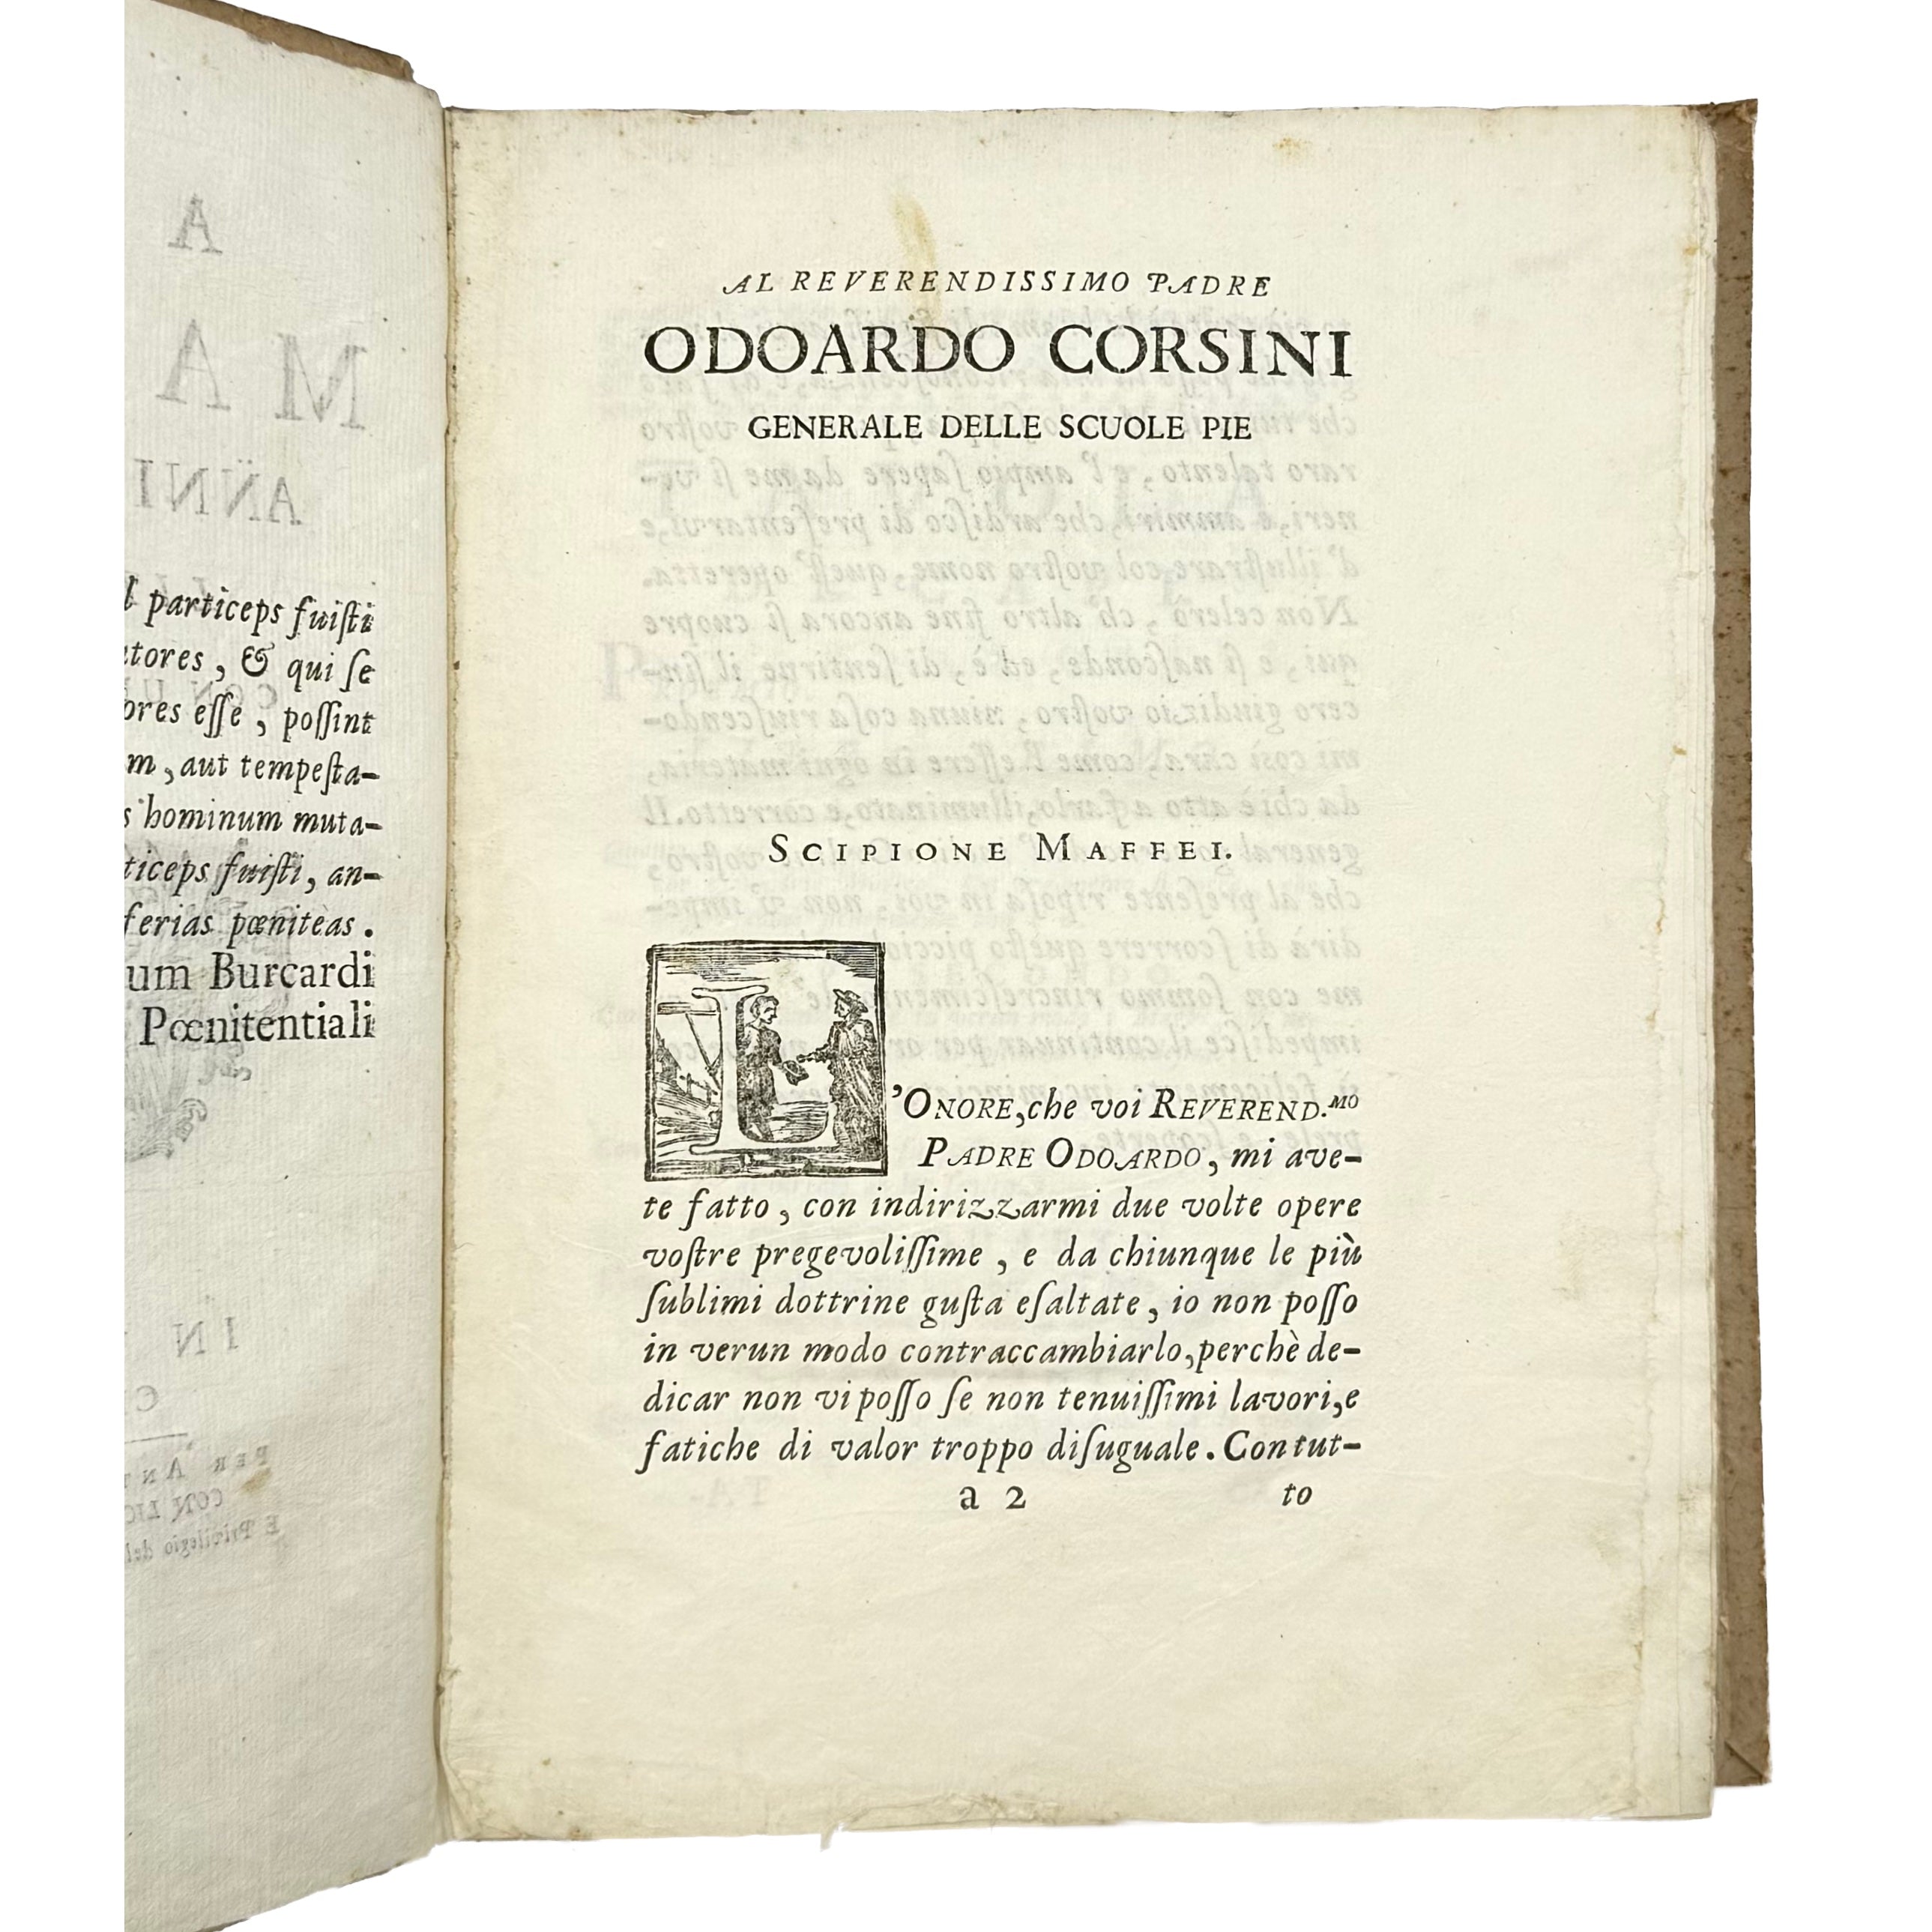 l particeps fuiſti
tores, & qui ſe
ores eſſe, poſſint
m, aut tempeſta-
s hominum muta-
ticeps fuiſti, an-
ferias pœniteas.
um Burcardi
Pœnitentiali
AL REVERENDISSIMO PADRE
ODOARDO CORSINI
GENERALE DELLE SCUOLE PIE
SCIPIONE MAFFEI.
L'ONORE, che voi REVEREND.MO
PADRE ODOARDO, mi ave-
te fatto, con indirizzarmi due volte opere
voſtre pregevoliſſime, e da chiunque le più
ſublimi dottrine guſta eſaltate, io non poſſo
in verun modo contraccambiarlo, perchè de-
dicar non vi poſſo ſe non tenuiſſimi lavori, e
fatiche di valor troppo diſuguale. Con tut-
a 2 to